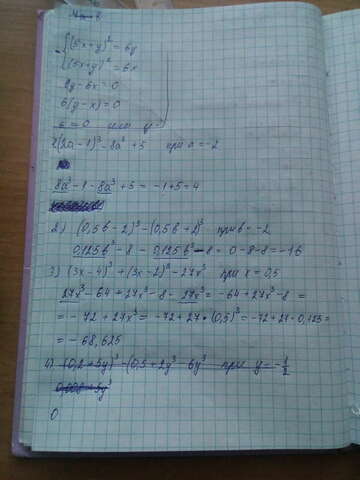 {(5x+y)² = 6y
{(5x+y)² = 6x
6y - 6x = 0
6(y-x) = 0
6 = 0 или y-
(2a-1)³ - 8a³ + 5 при a = -2
8a³ - 1 - 8a³ + 5 = -1 + 5 = 4
2) (0,5b - 2)³ - (0,5b + 2)³ при b = -2
0,125b³ - 8 - 0,125b³ - 8 = 0 - 8 - 8 = -16
3) (3x-4)³ + (3x-2)³ - 27x³ при x = 0,5
27x³ - 64 + 27x³ - 8 - 27x³ = -64 + 27x³ - 8 =
= -72 + 27x³ = -72 + 27 · (0,5)³ = -72 + 27 · 0,125 =
= -68,625
4) (0,2 + 5y)³ - (0,5 + 2y³ - 6y³ при y = -1/2
0,008 + 5y³
0